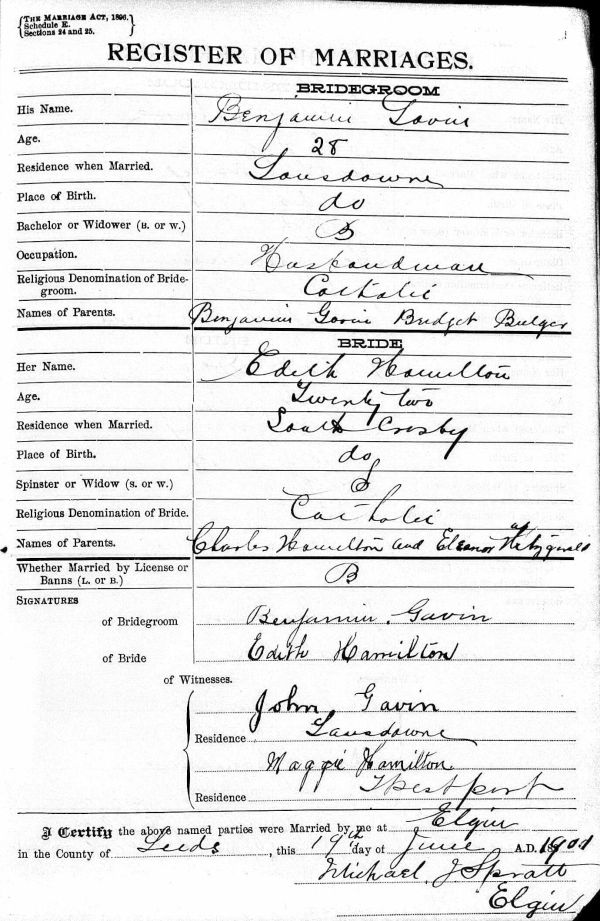 THE MARRIAGE ACT, 1896.
Schedule E.
Sections 24 and 25.
REGISTER OF MARRIAGES.
BRIDEGROOM
His Name. Benjamin Gavin
Age. 28
Residence when Married. Lansdowne
Place of Birth. do
Bachelor or Widower (B. or W.) B
Occupation. Husbandman
Religious Denomination of Bride-
groom. Catholic
Names of Parents. Benjamin Gavin Bridget Bulger
BRIDE
Her Name. Edith Hamilton
Age. Twenty two
Residence when Married. South Crosby
Place of Birth. do
Spinster or Widow (S. or W.) S
Religious Denomination of Bride. Catholic
Names of Parents. Charles Hamilton and Eleanor
Whether Married by License or
Banns (L. or B.) B
SIGNATURES
of Bridegroom Benjamin Gavin
of Bride Edith Hamilton
of Witnesses.
John Gavin
Residence Lansdowne
Maggie Hamilton
Residence Westport
I Certify the above named parties were Married by me at Elgin
in the County of Leeds, this 19th day of June A.D. 190
Michael J Spratt
Elgin